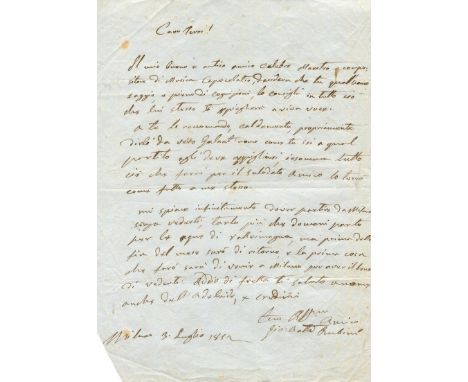 Caro Torri!
Il mio buono e antico amico celebre Maestro e compo
sitore di Musica desidera che tu
saggio, e perciò di consigli in tutto ciò
che lui stesso ti spiegherà a viva voce.
A te lo raccomando caldamente, propriamente
dirlo da vero Galant'uomo come tu sei a qual
partito egli deve appigliarsi insomma tutto
ciò che farai per il Amico lo terrò
come fatto a me stesso.
mi spiace infinitamente dover partir da Milano
senza vederti, tanto più che domani parto
per le aque di ma prima della
fine del mese sarò di ritorno e la prima cosa
che farò sarà di venir a Milano per aver il bene
di vederti. Addio di fretta ti saluto ancora
anche dall'Adelaide, e credimi
tuo Amico
Gio Batta Rubini
Milano 3. Luglio 1852